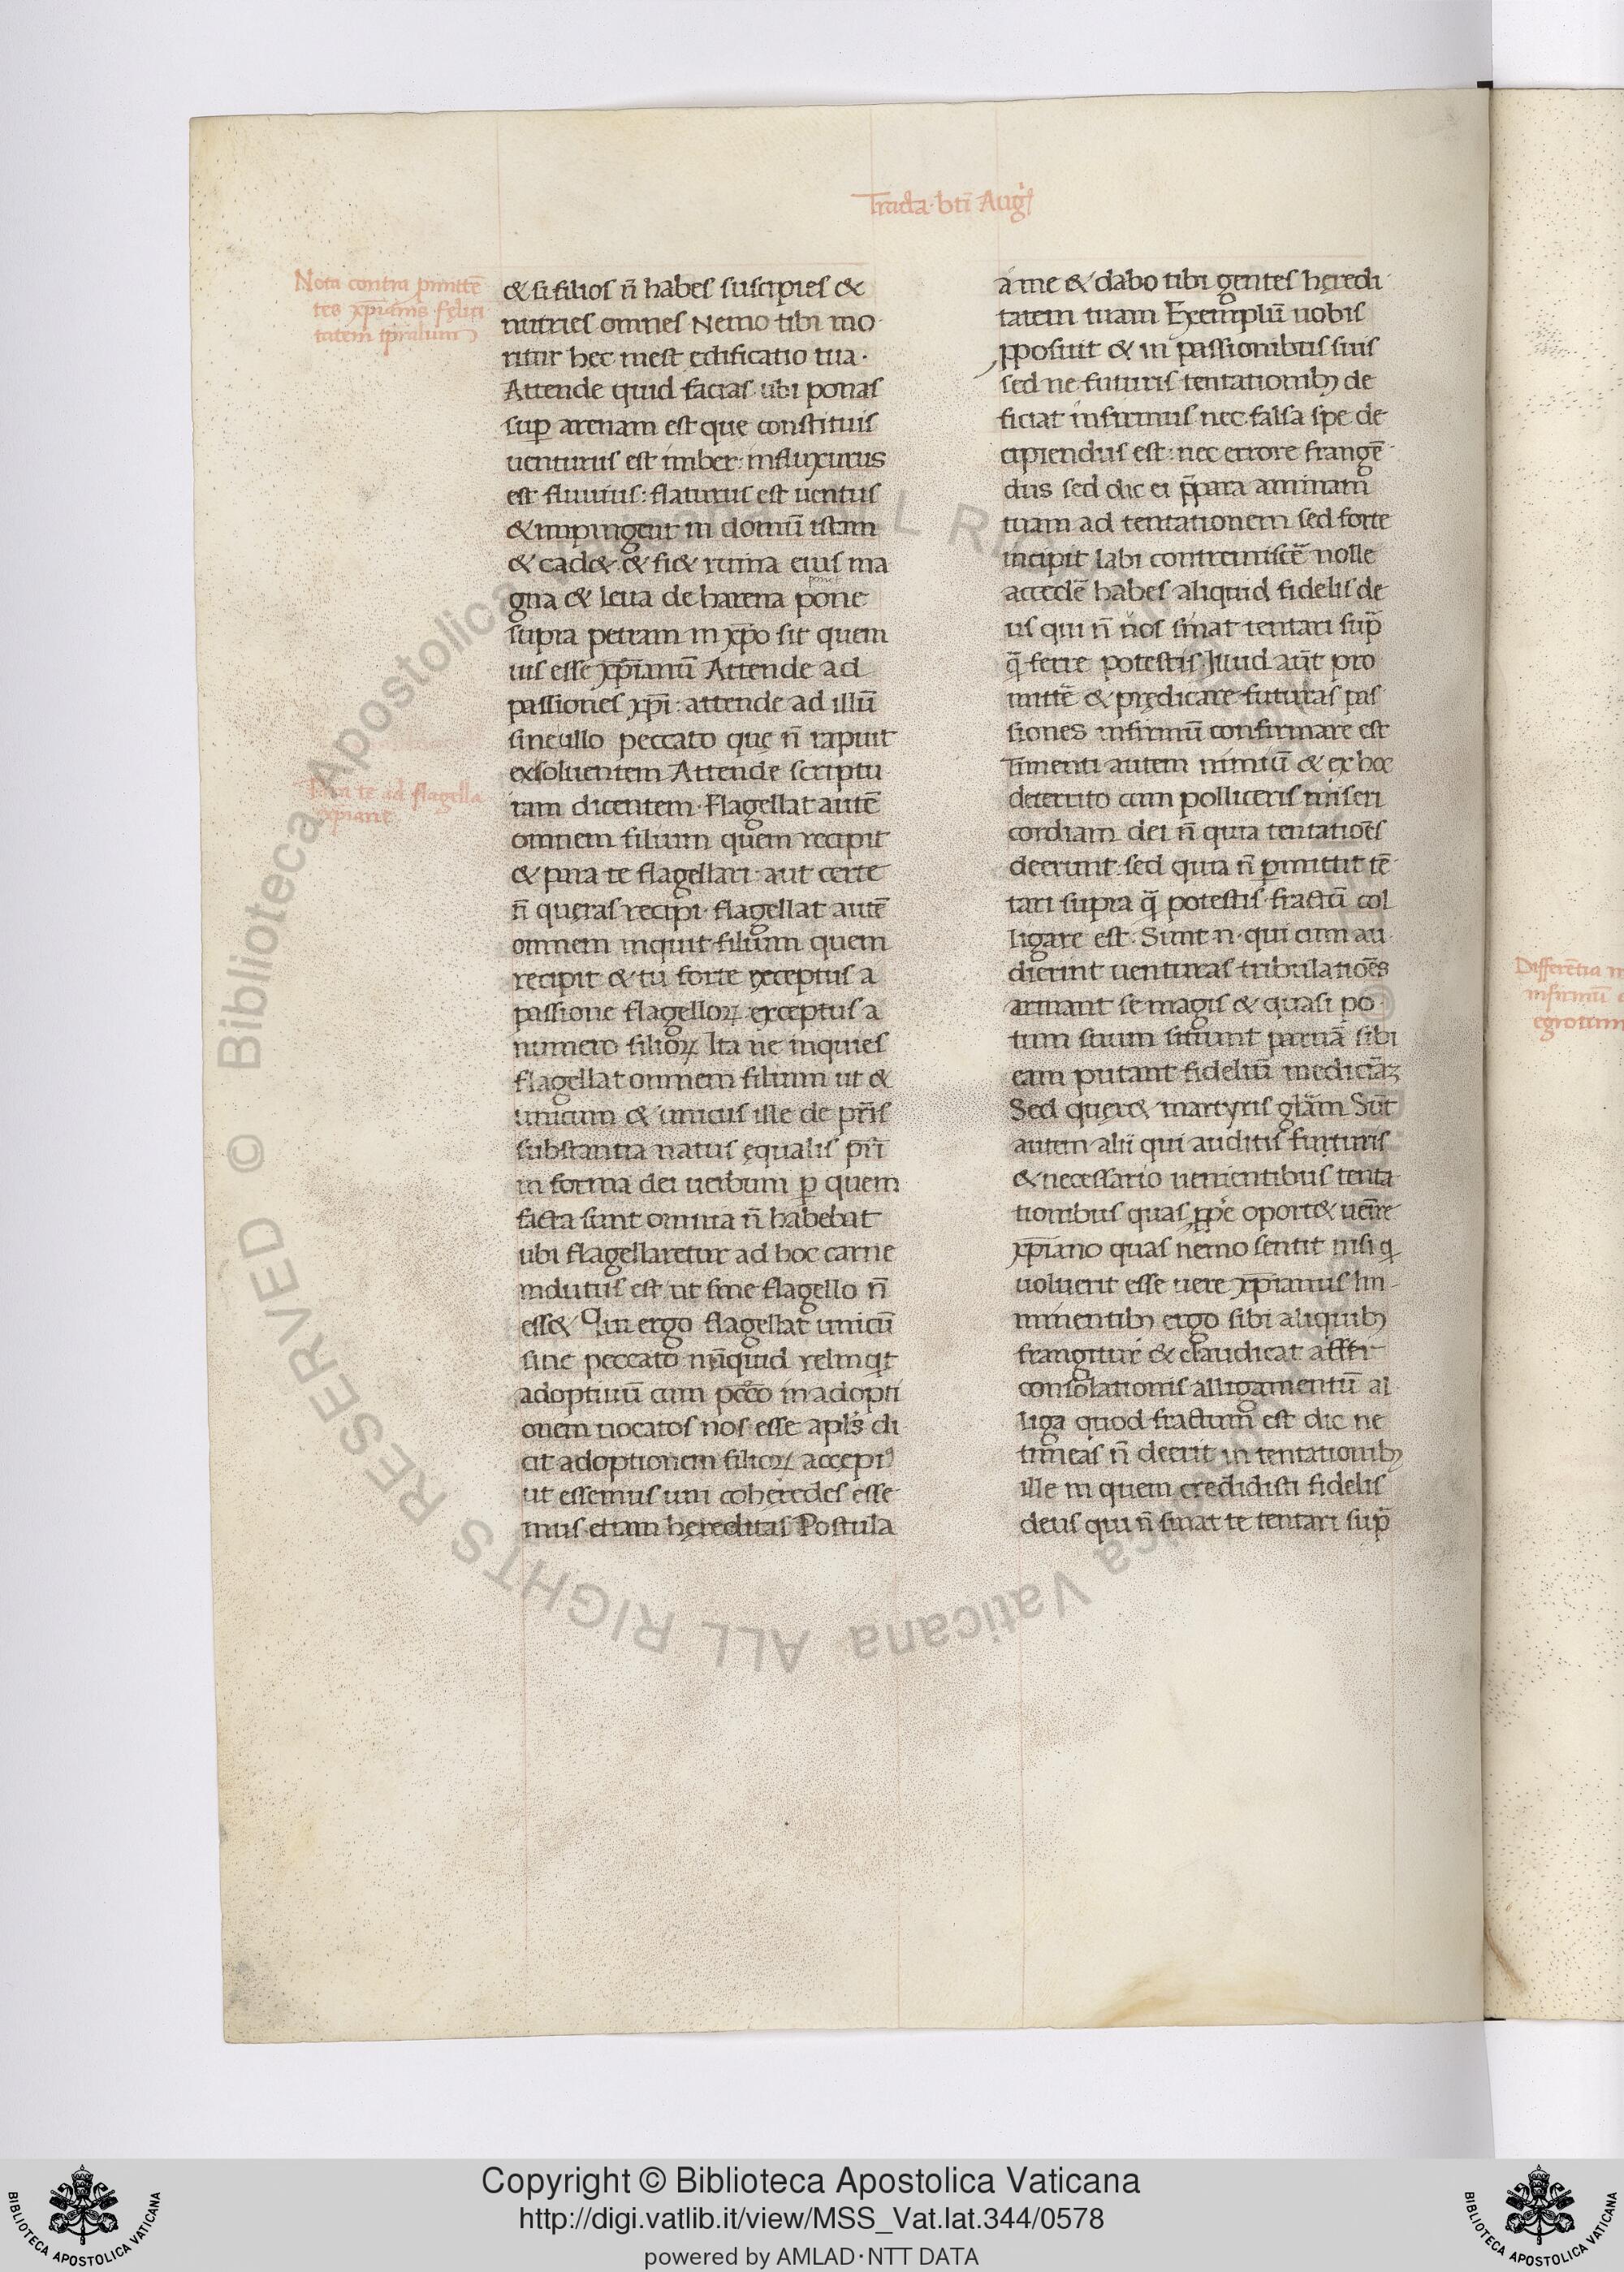 Tracta· bti Augͥ
Nota contra pmittē
tes xp̄ianis felici
tatem tp̄ralium
& si filios n̄ habes suscipies &
nutries omnes Nemo tibi mo
ritur hec inest edificatio tua·
Attende quid facias ubi ponas
suꝑ arenam est que constituis
uenturus est imber: influxurus
est fluuius: flaturus est uentus
& impingent in domū istam
& cad&· & fi& ruina eius ma
ponet
gna & leua de harena pone
supra petram in xp̄o sit quem
uis esse xp̄ianū Attende ad
passiones xp̄i: attende ad illū
sine ullo peccato que n̄ rapuit
exsoluentem Attende scriptu
Para te ad flagella
xp̄iane
ram dicentem· Flagellat autē
omnem filium quem recipit
& para te flagellari: aut certe
n̄ queras recipi· flagellat autē
omnem inquit filium quem
recipit & tu forte exceptus a
passione flagelloꝝ exceptus a
numero filioꝝ Ita ne inquies
flagellat omnem filium ut &
unicum & unicus ille de pr̄is
substantia natus ęqualis pr̄i
in forma dei uerbum ꝑ quem
facta sunt omnia n̄ habebat
ubi flagellaretur ad hoc carne
indutus est ut sine flagello n̄
ess& Qui ergo flagellat unicū
sine peccato nūquid relinqͥt
adoptiuū cum pctō in adopti
onem uocatos nos esse apl's di
cit adoptionem filioꝝ accepi⁹
ut essemus uni coheredes esse
mus etiam hereditas Postula
a me & dabo tibi gentes heredi
tatem tuam Exemplū uobis
ꝓposuit & in passionibus suis
sed ne futuris tentationibꝫ de
ficiat infirmus nec falsa spe de
cipiendus est: nec errore frangē
dus sed dic ei p̄para animam
tuam ad tentationem sed forte
incipit labi contremiscē nolle
accedē habes aliquid fidelis de
us qui n̄ uos sinat tentari sup̄
q̄ ferre potestis Illud aūt pro
mittē & prędicare futuras pas
siones infirmū confirmare est
Timenti autem nimiū & ex hoc
deterrito cum polliceris miseri
cordiam dei n̄ quia tentatiōes
deerunt: sed quia n̄ ꝑmittit tē
tari supra q̄ potestis fractū col
ligare est· Sunt n· qui cum au
dierint uenturas tribulatiōes
armant se magis & quasi po
tum suum sitiunt paruā sibi
eam putant fideliū medicināʒ
Sed quer& martyris glām Sūt
autem alii qui auditis futuris
& necessario uenientibus tenta
tionibus quas ꝓpͥe oport& uenire
xp̄iano quas nemo sentit nisi qͥ
uoluerit esse uere xp̄ianus Im
minentibꝫ ergo sibi aliquibꝫ
frangitur & claudicat affer
consolationis alligamentū al
liga quod fractum est dic ne
timeas n̄ deerit in tentationibꝫ
ille in quem credidisti fidelis
deus qui n̄ sinat te tentari sup̄
Differētia
infirmū
egrotum
© Biblioteca Apostolica Vaticana ALL RIGHTS RESERVED
Copyright © Biblioteca Apostolica Vaticana
http://digi.vatlib.it/view/MSS_Vat.lat.344/0578
powered by AMLAD·NTT DATA
BIBLIOTECA APOSTOLICA VATICANA
BIBLIOTECA APOSTOLICA VATICANA